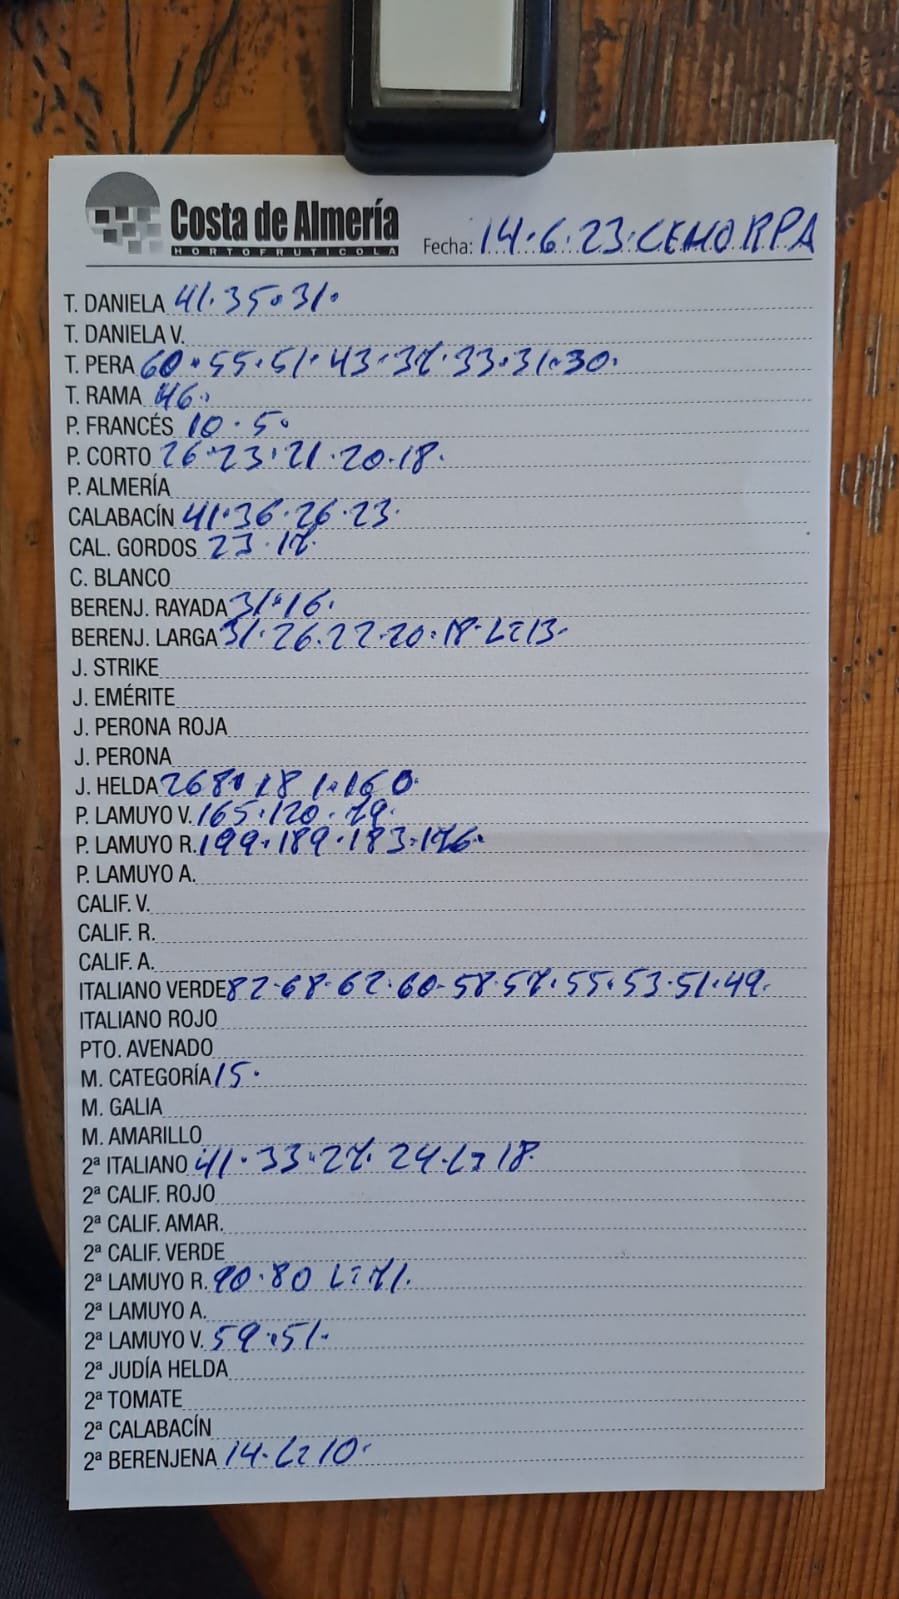 Costa de Almería
HORTOFRUTICOLA
Fecha: 14.6.23. CEHORPA
T. DANIELA 41.35.31.
T. DANIELA V.
T. PERA 60.55.51.43.37.33.31.30.
T. RAMA 46.
P. FRANCÉS 10.5.
P. CORTO 26.23.21.20.18.
P. ALMERÍA
CALABACÍN 41.36.26.23.
CAL. GORDOS 23.17.
C. BLANCO
BERENJ. RAYADA 31.16.
BERENJ. LARGA 31.26.22.20.18.L=13.
J. STRIKE
J. EMÉRITE
J. PERONA ROJA
J. PERONA
J. HELDA 268.181.160.
P. LAMUYO V. 165.120.79.
P. LAMUYO R. 199.189.183.176.
P. LAMUYO A.
CALIF. V.
CALIF. R.
CALIF. A.
ITALIANO VERDE 82.68.62.60.58.57.55.53.51.49.
ITALIANO ROJO
PTO. AVENADO
M. CATEGORÍA 15.
M. GALIA
M. AMARILLO
2ª ITALIANO 41.33.27.24.L=18.
2ª CALIF. ROJO
2ª CALIF. AMAR.
2ª CALIF. VERDE
2ª LAMUYO R. 90.80 L=71.
2ª LAMUYO A.
2ª LAMUYO V. 59.51.
2ª JUDÍA HELDA
2ª TOMATE
2ª CALABACÍN
2ª BERENJENA 14.L=10.